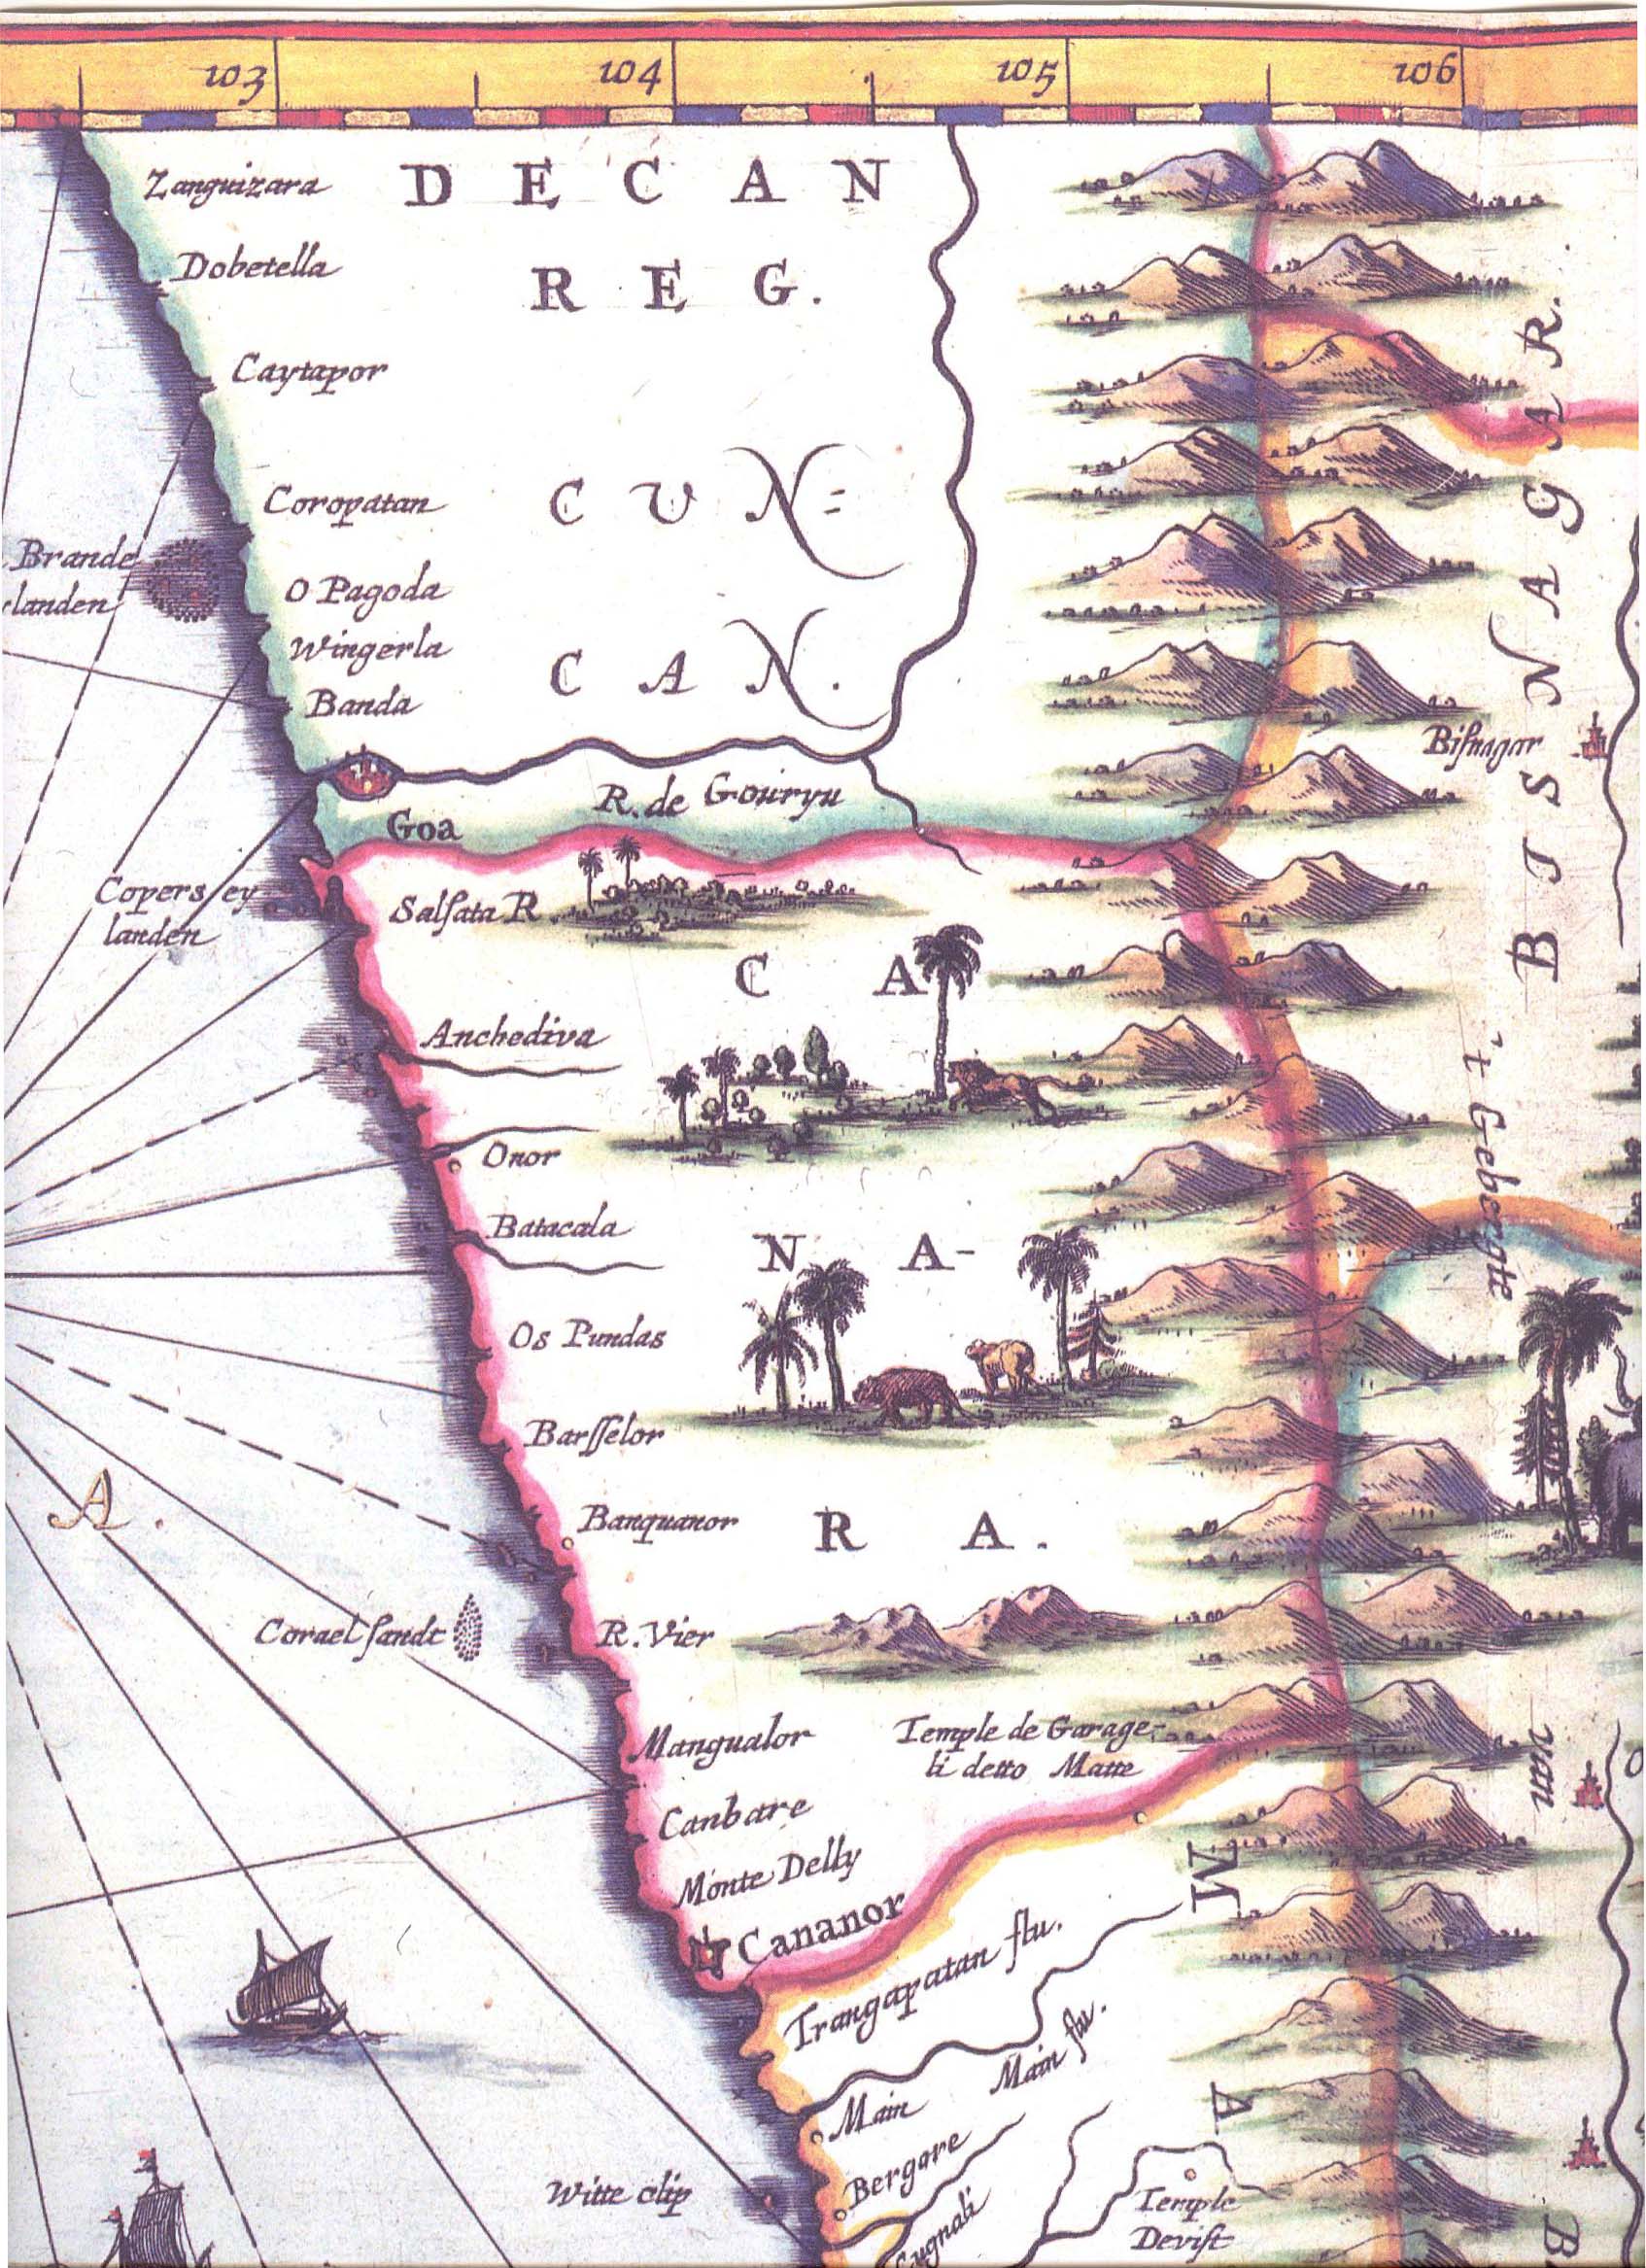 103 104 105 106
Zanguizara
DECAN
REG.
Dobetella
Caytapor
Coropatan
CUN=
CAN.
Brande
landen
O Pagoda
Wingerla
Banda
BISNAGAR.
Bisnagar
R. de Gouryu
Goa
Copers ey
landen
Salsata R
CA
NA-
RA.
Anchediva
Onor
Batacala
Os Pundas
Barsselor
Banquanor
't Gebergte
van
A.
Corael sandt
R. Vier
Mangualor
Temple de Garage-
li detto Matte
Canbare
Monte Delly
Cananor
Trangapatan flu.
Main flu.
Main
Bergare
Witte clip
Temple
Devist
M
A
B
O